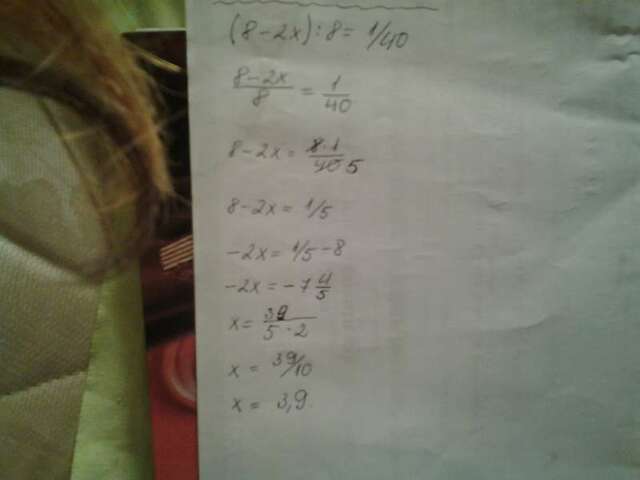 (8-2x):8= 1/40
8-2x/8 = 1/40
8-2x= 8·1/40 5
8-2x= 1/5
-2x= 1/5-8
-2x= -7 4/5
x= 39/5·2
x= 39/10
x= 3,9